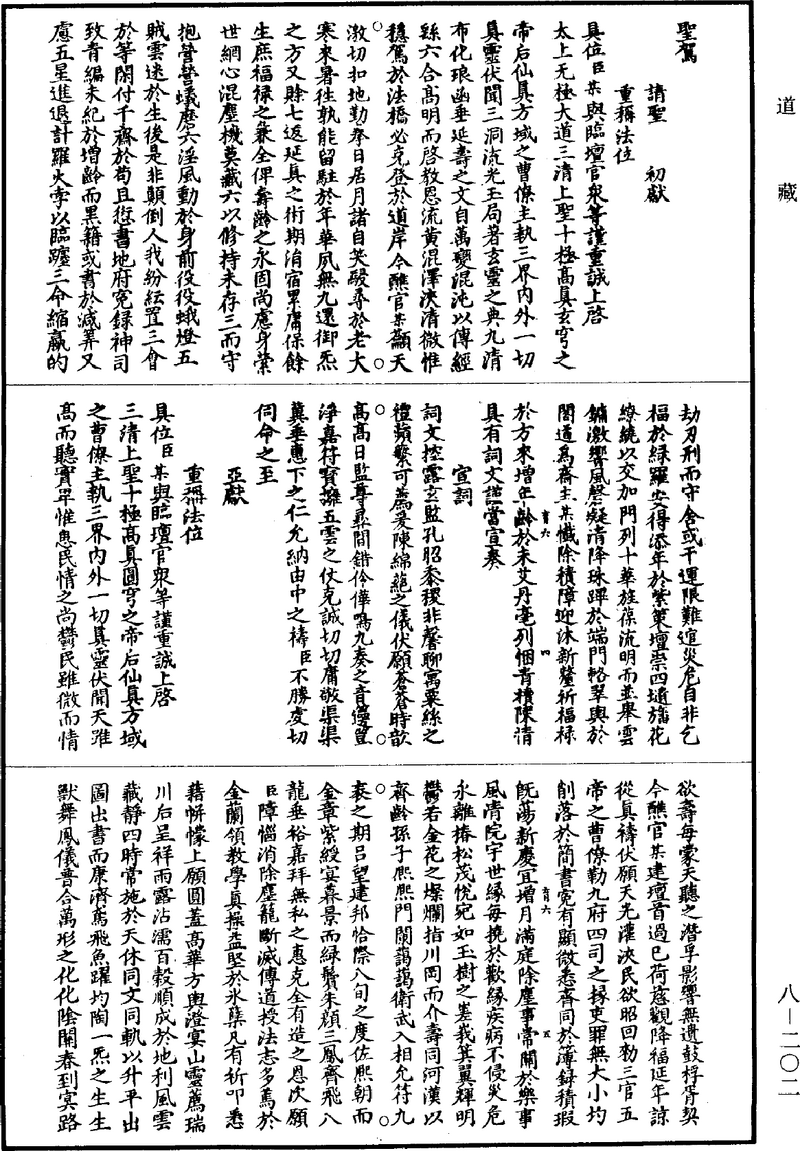 道藏
聖駕
請聖　初獻
重稱法位
具位臣某與臨壇官眾等謹重誠上啓
太上无極大道三清上聖十極高真玄穹之
帝后仙真方域之曹僚主執三界內外一切
真靈伏聞三洞流光玉局著玄靈之典九清
布化琅函垂延壽之文自萬變混沌以傳經
繇六合高明而啓教恩流黃混澤浹清微惟
穩駕於法橋必克登於道岸今醮官某顙天
激切扣地勤拳日居月諸自笑駸尋於老大
寒來暑往孰能留駐於年華夙無九還御炁
之方又賒七返延真之術期消宿累庸保餘
生庶福祿之兼全俾壽齡之永固尚慮身縈
世網心混塵機莫藏六以修持未存三而守
抱營營蟻磨六淫風動於身前役役蛾燈五
賊雲迷於生後是非顛倒人我紛紜置三會
於等閑付千齋於苟且愆書地府冤錄神司
致青編未紀於增齡而黑籍或書於減筭又
慮五星進退計羅火孛以臨躔三命縮贏的
劫刃刑而守舍或干運限難逭災危自非乞
福於綠羅安得添年於紫策壇崇四墄旛花
繚繞以交加門列十華旌葆流明而並舉雲
鏞激響風磬凝清降珠蹕於端門輅翠輿於
閣道為齋主某懺除積障迎沐新釐祈福祿
於方來增年齡於未艾丹毫列悃青櫝陳情
具有詞文謹當宣奏
宣詞
詞文控露玄監孔昭黍稷非馨聊寓粟絲之
禮蘋蘩可薦爰陳綿蕝之儀伏願蒼蒼時歆
高高日監尊彞間錯伶倕鳴九奏之音籩豆
淨嘉符寳擁五雲之仗克誠切切庸敬渠渠
冀垂惠下之仁允納由中之禱臣不勝虔切
伺命之至
亞獻
重稱法位
具位臣某與臨壇官眾等謹重誠上啓
三清上聖十極高真圓穹之帝后仙真方域
之曹僚主執三界內外一切真靈伏聞天雖
高而聽實卑惟惠民情之尚欝民雖微而情
欲壽每蒙天聽之潛孚影響無遺鼓桴胥契
今醮官某建壇首過已荷慈觀降福延年諒
從真禱伏願天光灌浹民欲昭回勑三官五
帝之曹僚勒九府四司之掾吏罪無大小均
削落於簡書冤有顯微悉齊同於簿録積瑕
既蕩新慶冝增月滿庭除塵事常關於樂事
風清院宇世緣每撓於歡緣疾病不侵災危
永離椿松茂恱宛如玉樹之峩峩箕翼輝明
欝若金花之燦爛指川岡而介壽同河漢以
齊齡孫子熈熈門闌藹藹衛武入相允符九
袠之期吕望建邦恰際八旬之度佐熙朝而
金章紫綬宴暮景而綠鬢朱顏三鳳齊飛八
龍垂裕嘉拜無私之惠克全有造之恩次願
臣障惱消除塵籠斷滅傳道授法志多蔫於
金蘭領教學真操益堅於氷蘖凡有祈叩悉
藉帡幪上願圓蓋高華方輿澄宴山靈薦瑞
川后呈祥雨露沾濡百穀順成於地利風雲
藏靜四時常施於天休同文同軌以升平出
圖出書而康濟鳶飛魚躍均陶一炁之生生
獸舞鳳儀普合萬形之化化陰闢春到冥路
育六　四
育六　五
八—二〇二